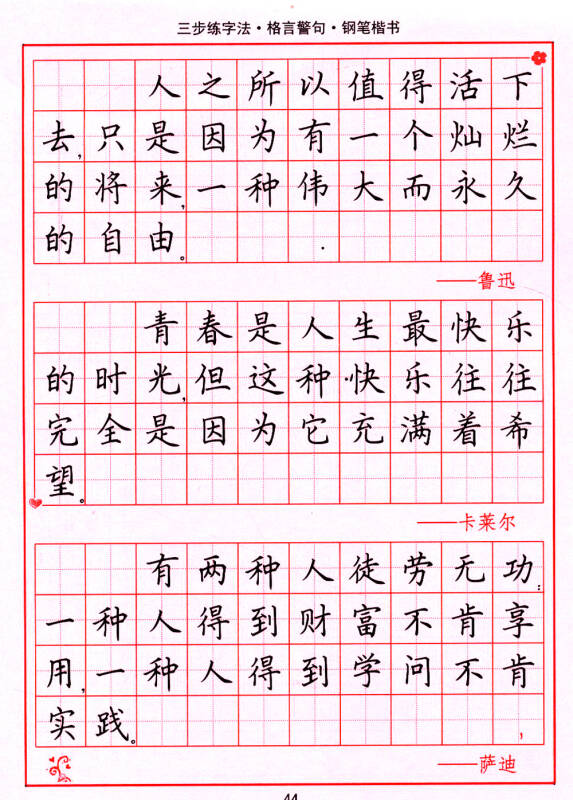 三步练字法·格言警句·钢笔楷书
人之所以值得活下
去,只是因为有一个灿烂
的将来,一种伟大而永久
的自由。
——鲁迅
青春是人生最快乐
的时光,但这种快乐往往
完全是因为它充满着希
望。
——卡莱尔
有两种人徒劳无功:
一种人得到财富不肯享
用,一种人得到学问不肯
实践。
——萨迪
44